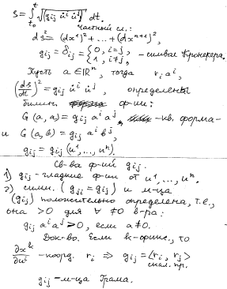 S = ∫_{t_0}^{t} √(g_{ij} u̇^i u̇^j) dt.
Частный сл.:
ds² = (dx¹)² + ... + (dx^{n+1})²,
g_{ij} = δ_{ij} = {0, i=j, 1, i≠j, - символ Кронекера.
Пусть a∈ℝⁿ, тогда r_i a^i,
(ds/dt)² = g_{ij} u̇^i u̇^j, определены
ф-ии:
G(a,a) = g_{ij} a^i a^j, - кв. форма
и G(a,b) = g_{ij} a^i b^j,
g_{ij} = g_{ij}(u¹,…,uⁿ)
Св-ва ф-ий g_{ij}.
1) g_{ij} - гладкие ф-ии от u¹,…,uⁿ.
2) симм. (g_{ji} = g_{ij}) и м-ца
(g_{ij}) положительно определена, т.е.,
она >0 для ∀ ≠0 в-ра:
g_{ij} a^i a^j > 0, если a≠0.
Док-во. Если то
∂x^k/∂u^i - коорд. r_i ⇒ g_{ij} = ⟨r_i, r_j⟩
скал. пр.
g_{ij} = м-ца Грама.